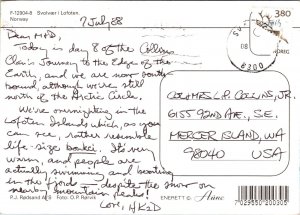 F-12904-6 Svolvær i Lofoten.
Norway
7 July 88
380
NOREG
8300
Dear M+D,
Today is day 8 of the Collins
Clan's Journey to the Edge of the
Earth, and we are now south
bound, although we're still
north of the Arctic Circle.
We're overnighting in the
Lofoten Islands which, as you
can see, rather resemble
life-size bonkei. It's very
warm, and people are
actually swimming and boating
in the fjord — despite the snow on
nearby mountain peaks!
Love, HK2D
COL+MRS L.P. COLLINS, JR.
6155 92ND AVE., S.E.
MERCER ISLAND, WA
98040 USA
P.J. Rødsand A/S Foto: O.P. Rørvik
ENERETT ©
7029550 200305